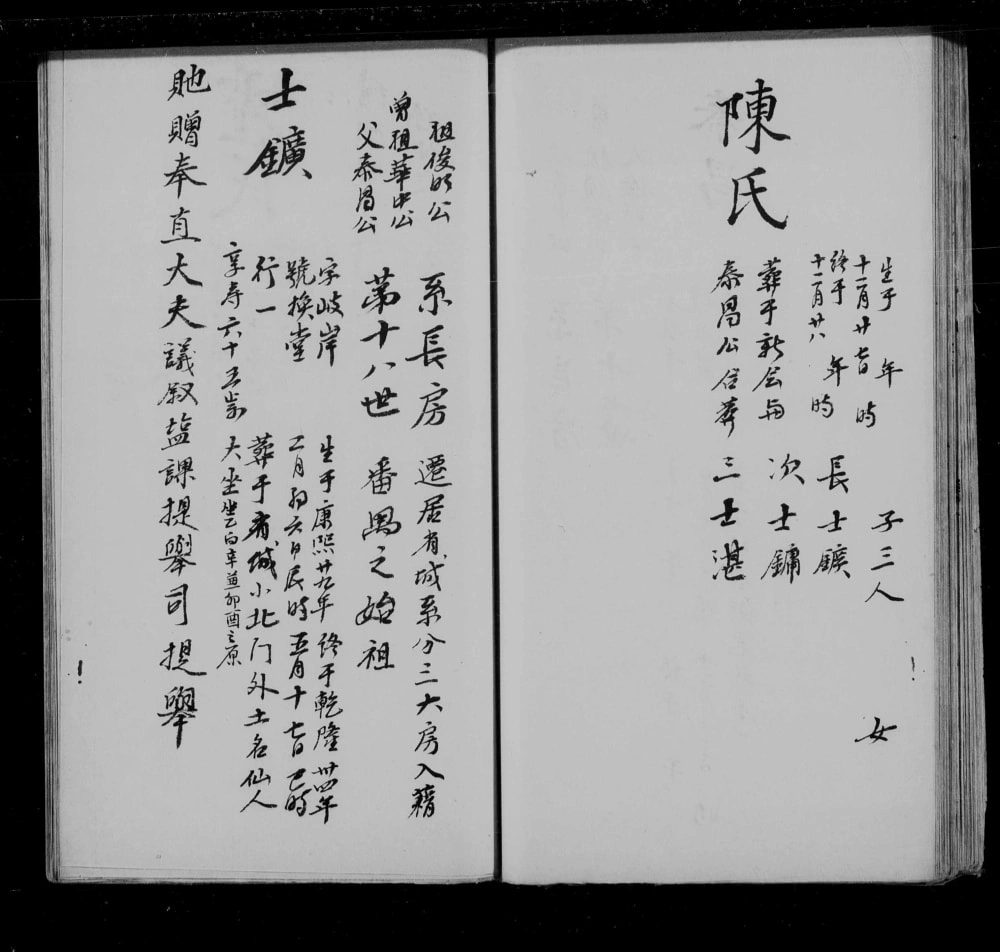 陳氏
生于 年
十一月廿七日 時
終于 年
十二月廿八 時
葬于新会与
泰昌公合葬
子三人
長士鑛
次士鏞
三士湛
女
祖俊明公
曾祖華中公
父泰昌公
系長房遷居省城系分三大房入籍
第十八世番禺之始祖
士鑛
字岐岸
號換堂
行一
享寿六十五歲
生于康熙廿九年終于乾隆卅四年
二月初六日辰時五月十七日巳時
葬于省城小北门外土名仙人
大坐坐乙向辛兼卯酉之原
貤贈奉直大夫議叙塩課提舉司提舉